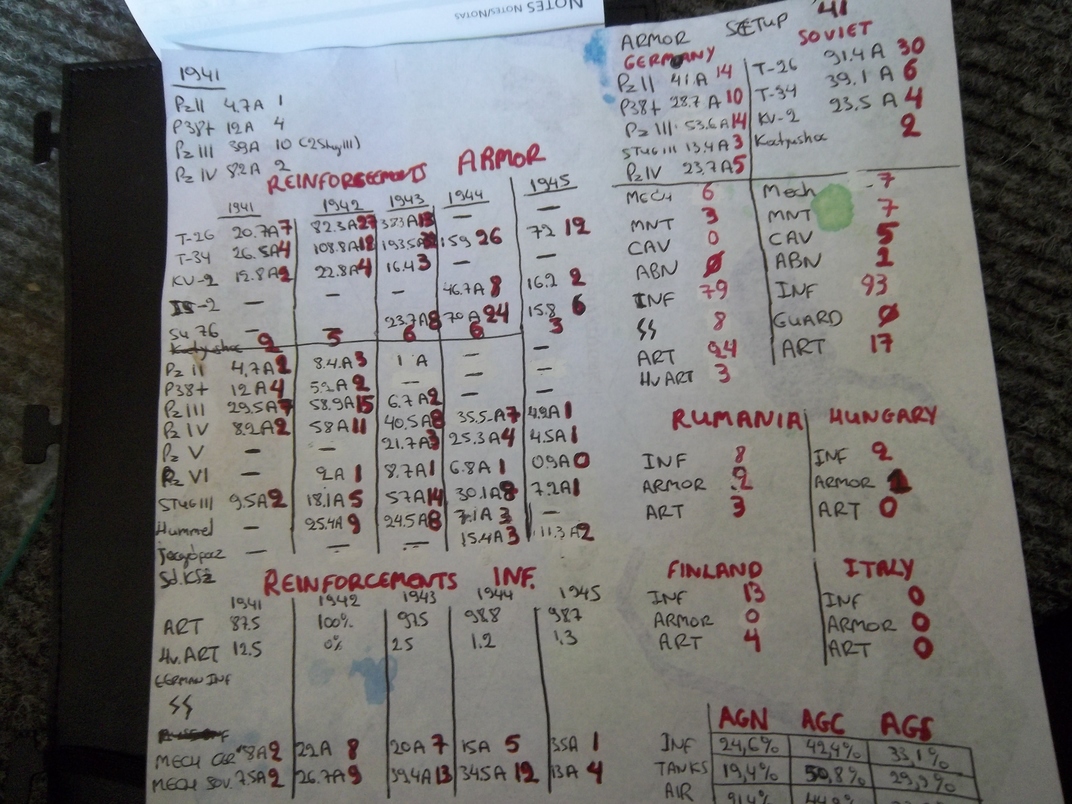 NOTES NOTES/NOTAS
1941
Pz II 4.7A 1
P38t 12A 4
Pz III 39A 10 (2StugIII)
Pz IV 82A 2
REINFORCEMENTS ARMOR
1941 1942 1943 1944 1945
T-26 20.7A 7 82.3A 27 383A 13 — —
T-34 26.5A 4 108.8A 18 193.5A 159 26 72 12
KV-2 12.8A 2 22.8A 4 16.4 3 — —
IS-2 — — — 46.7A 8 16.2 2
SU 76 — — 23.7A 8 70A 24 15.8 6
Katyusha 2 3 6 6 3
Pz II 4,7A 2 8.4A 3 1 A — —
P38t 12A 4 5.2A 2 — — —
Pz III 29.5A 7 58.9A 15 6.7A 2 — —
Pz IV 8.2A 2 58A 11 40.5A 8 35.5A 7 4.9A 1
Pz V — — 21.7A 3 25.3A 4 4.5A 1
Pz VI — 2A 1 8.7A 1 6.8A 1 09A 0
STUG III 9.5A 2 18.1A 5 57A 14 30.1A 8 7.2A 1
Hummel — 25.4A 9 24.5A 8 7.1A 3 —
— — — 15.4A 3 11.3A 2
Sd.Kfz
REINFORCEMENTS INF.
1941 1942 1943 1944 1945
ART 87.5 100% 97.5 98.8 98.7
Hv.ART 12.5 0% 2.5 1.2 1.3
GERMAN INF
SS
MECH GER 8A 2 22A 8 20A 7 15A 5 3.5A 1
MECH SOV. 7.5A 2 26.7A 9 39.4A 13 34.5A 12 13A 4
ARMOR SETUP '41
GERMANY SOVIET
Pz II 41.A 14 T-26 91.4A 30
P38t 28.7A 10 T-34 39.1A 6
Pz III 53.6A 14 KV-2 23.5A 4
STUG III 13.4A 3 Katyusha 2
Pz IV 23.7A 5
MECH 6 Mech 7
MNT 3 MNT 7
CAV 0 CAV 5
ABN 0 ABN 1
INF 79 INF 93
SS 8 GUARD 0
ART 24 ART 17
Hv ART 3
RUMANIA HUNGARY
INF 8 INF 2
ARMOR 2 ARMOR 1
ART 3 ART 0
FINLAND ITALY
INF 13 INF 0
ARMOR 0 ARMOR 0
ART 4 ART 0
AGN AGC AGS
INF 24,6% 42,4% 33,1%
TANKS 19,4% 50,8% 29,9%
AIR